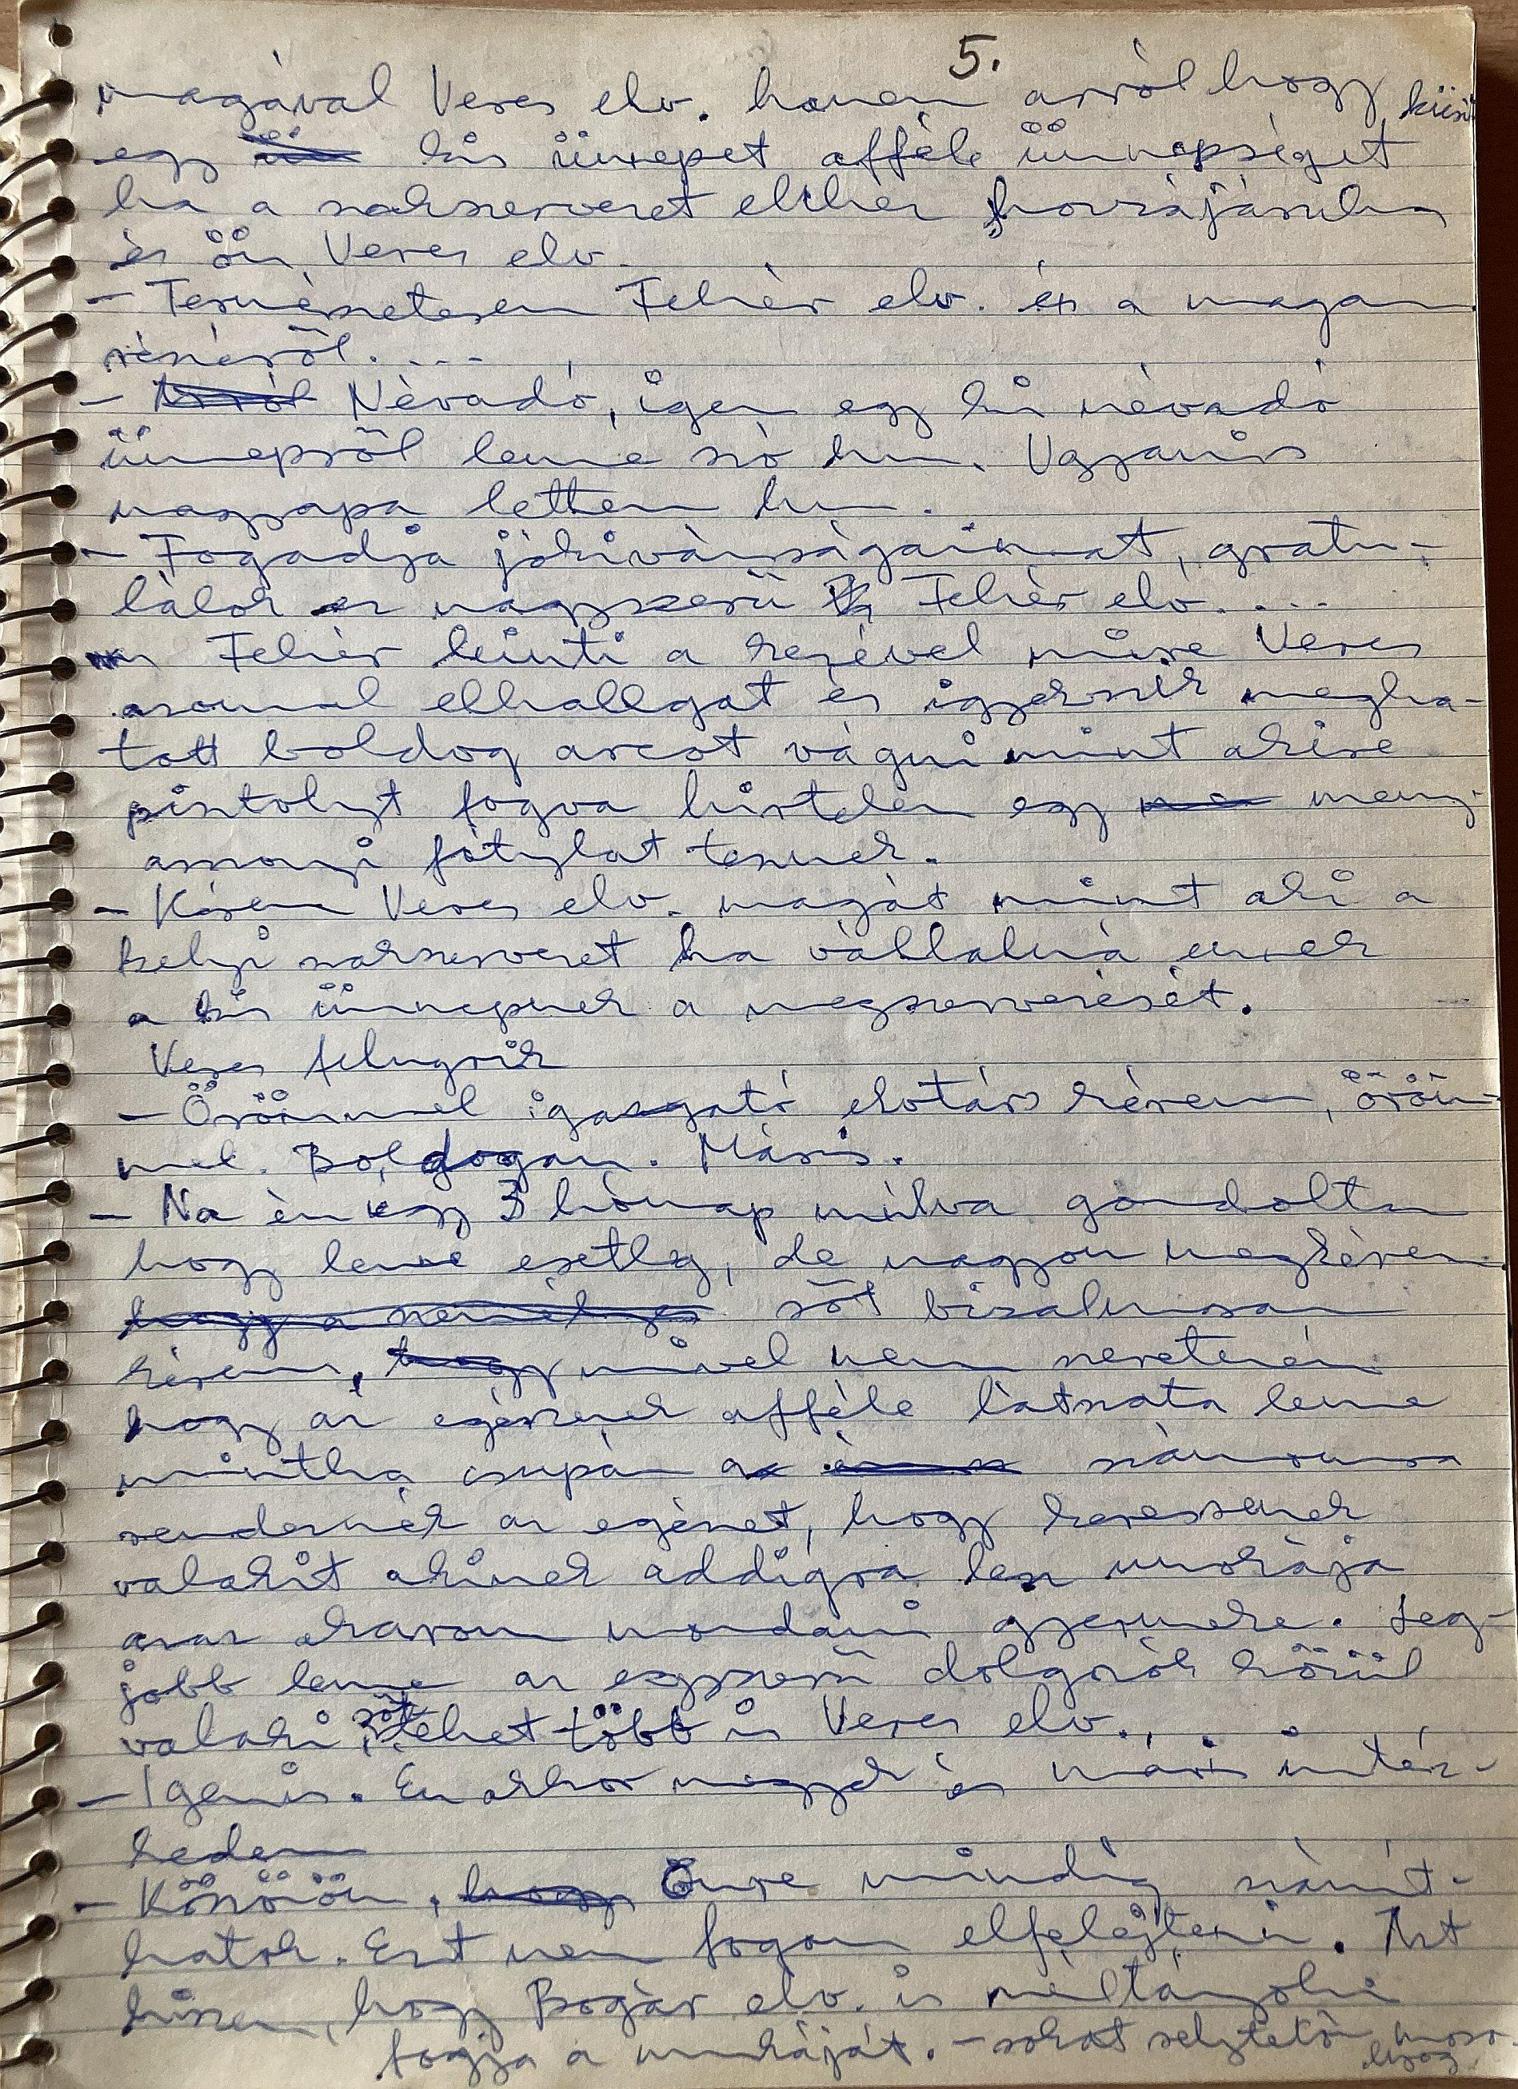 5.
magával Veres elv. hanem arról hogy
egy kis ünnepet afféle ünnepséget
ha a szakszervezet elhér hozzájárulna
és ön Veres elv.
- Természetesen Fehér elv. és a magam
részéről. ...
- Névadó, igen egy kis névadó
ünnepről lenne szó hm. Ugyanis
nagyapa lettem hm.
- Fogadja jókívánságaimat, gratu-
lálok ez nagyszerű Fehér elv. ...
Fehér leinti a kezével mire Veres
azonnal elhallgat és igyekszik megha-
tott boldog arcot vágni mint akire
pisztolyt fogva hirtelen egy meny-
asszonyi fátylat tesznek.
- Kérem Veres elv. magát mint aki a
helyi szakszervezet ha vállalná ennek
a kis ünnepnek a megszervezését.
Veres felugrik
- Örömmel igazgató elvtárs kérem, öröm-
mel. Boldogan. Máris.
- Na én úgy 3 hónap múlva gondoltam
hogy lenne esetleg, de nagyon megkérem
sőt bizalmasan
kérem, mivel nem szeretném
hogy az egésznek afféle látszata lenne
mintha csupán számomra
rendeznék az egészet, hogy keressenek
valakit akinek addigra lesz unokája
azaz akarom mondani gyermeke. Leg-
jobb lenne az egyszerű dolgozók közül
valaki, sőt lehet több is Veres elv.
- Igenis. Én akkor megyek és máris intéz-
kedem
- Köszönöm, Önre mindig számít-
hatok. Ezt nem fogom elfelejteni. Azt
hiszem, hogy Bogár elv. is méltányolni
fogja a munkáját. - sokat sejtetőn moso-
lyog